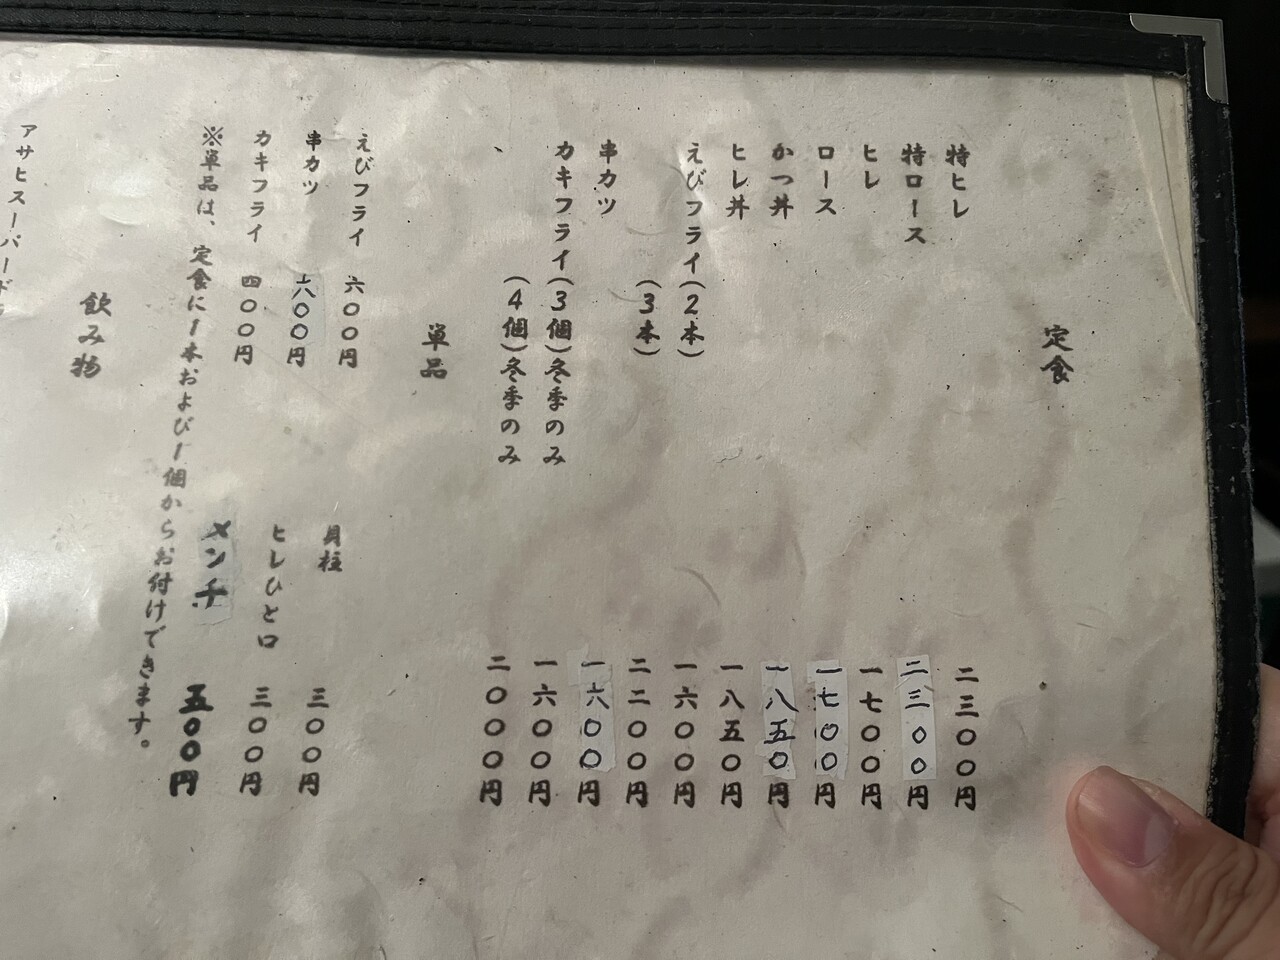 定食
特ヒレ 二三〇〇円
特ロース 二三〇〇円
ヒレ 一七〇〇円
ロース 一七〇〇円
かつ丼 一八五〇円
ヒレ丼 一八五〇円
えびフライ(2本) 一六〇〇円
(3本) 二二〇〇円
串カツ 一六〇〇円
カキフライ(3個)冬季のみ 一六〇〇円
(4個)冬季のみ 二〇〇〇円
単品
えびフライ 六〇〇円
貝柱 三〇〇円
串カツ 六〇〇円
ヒレひと口 三〇〇円
カキフライ 四〇〇円
メンチ 五〇〇円
※単品は、定食に1本および1個からお付けできます。
飲み物
アサヒスーパードラ